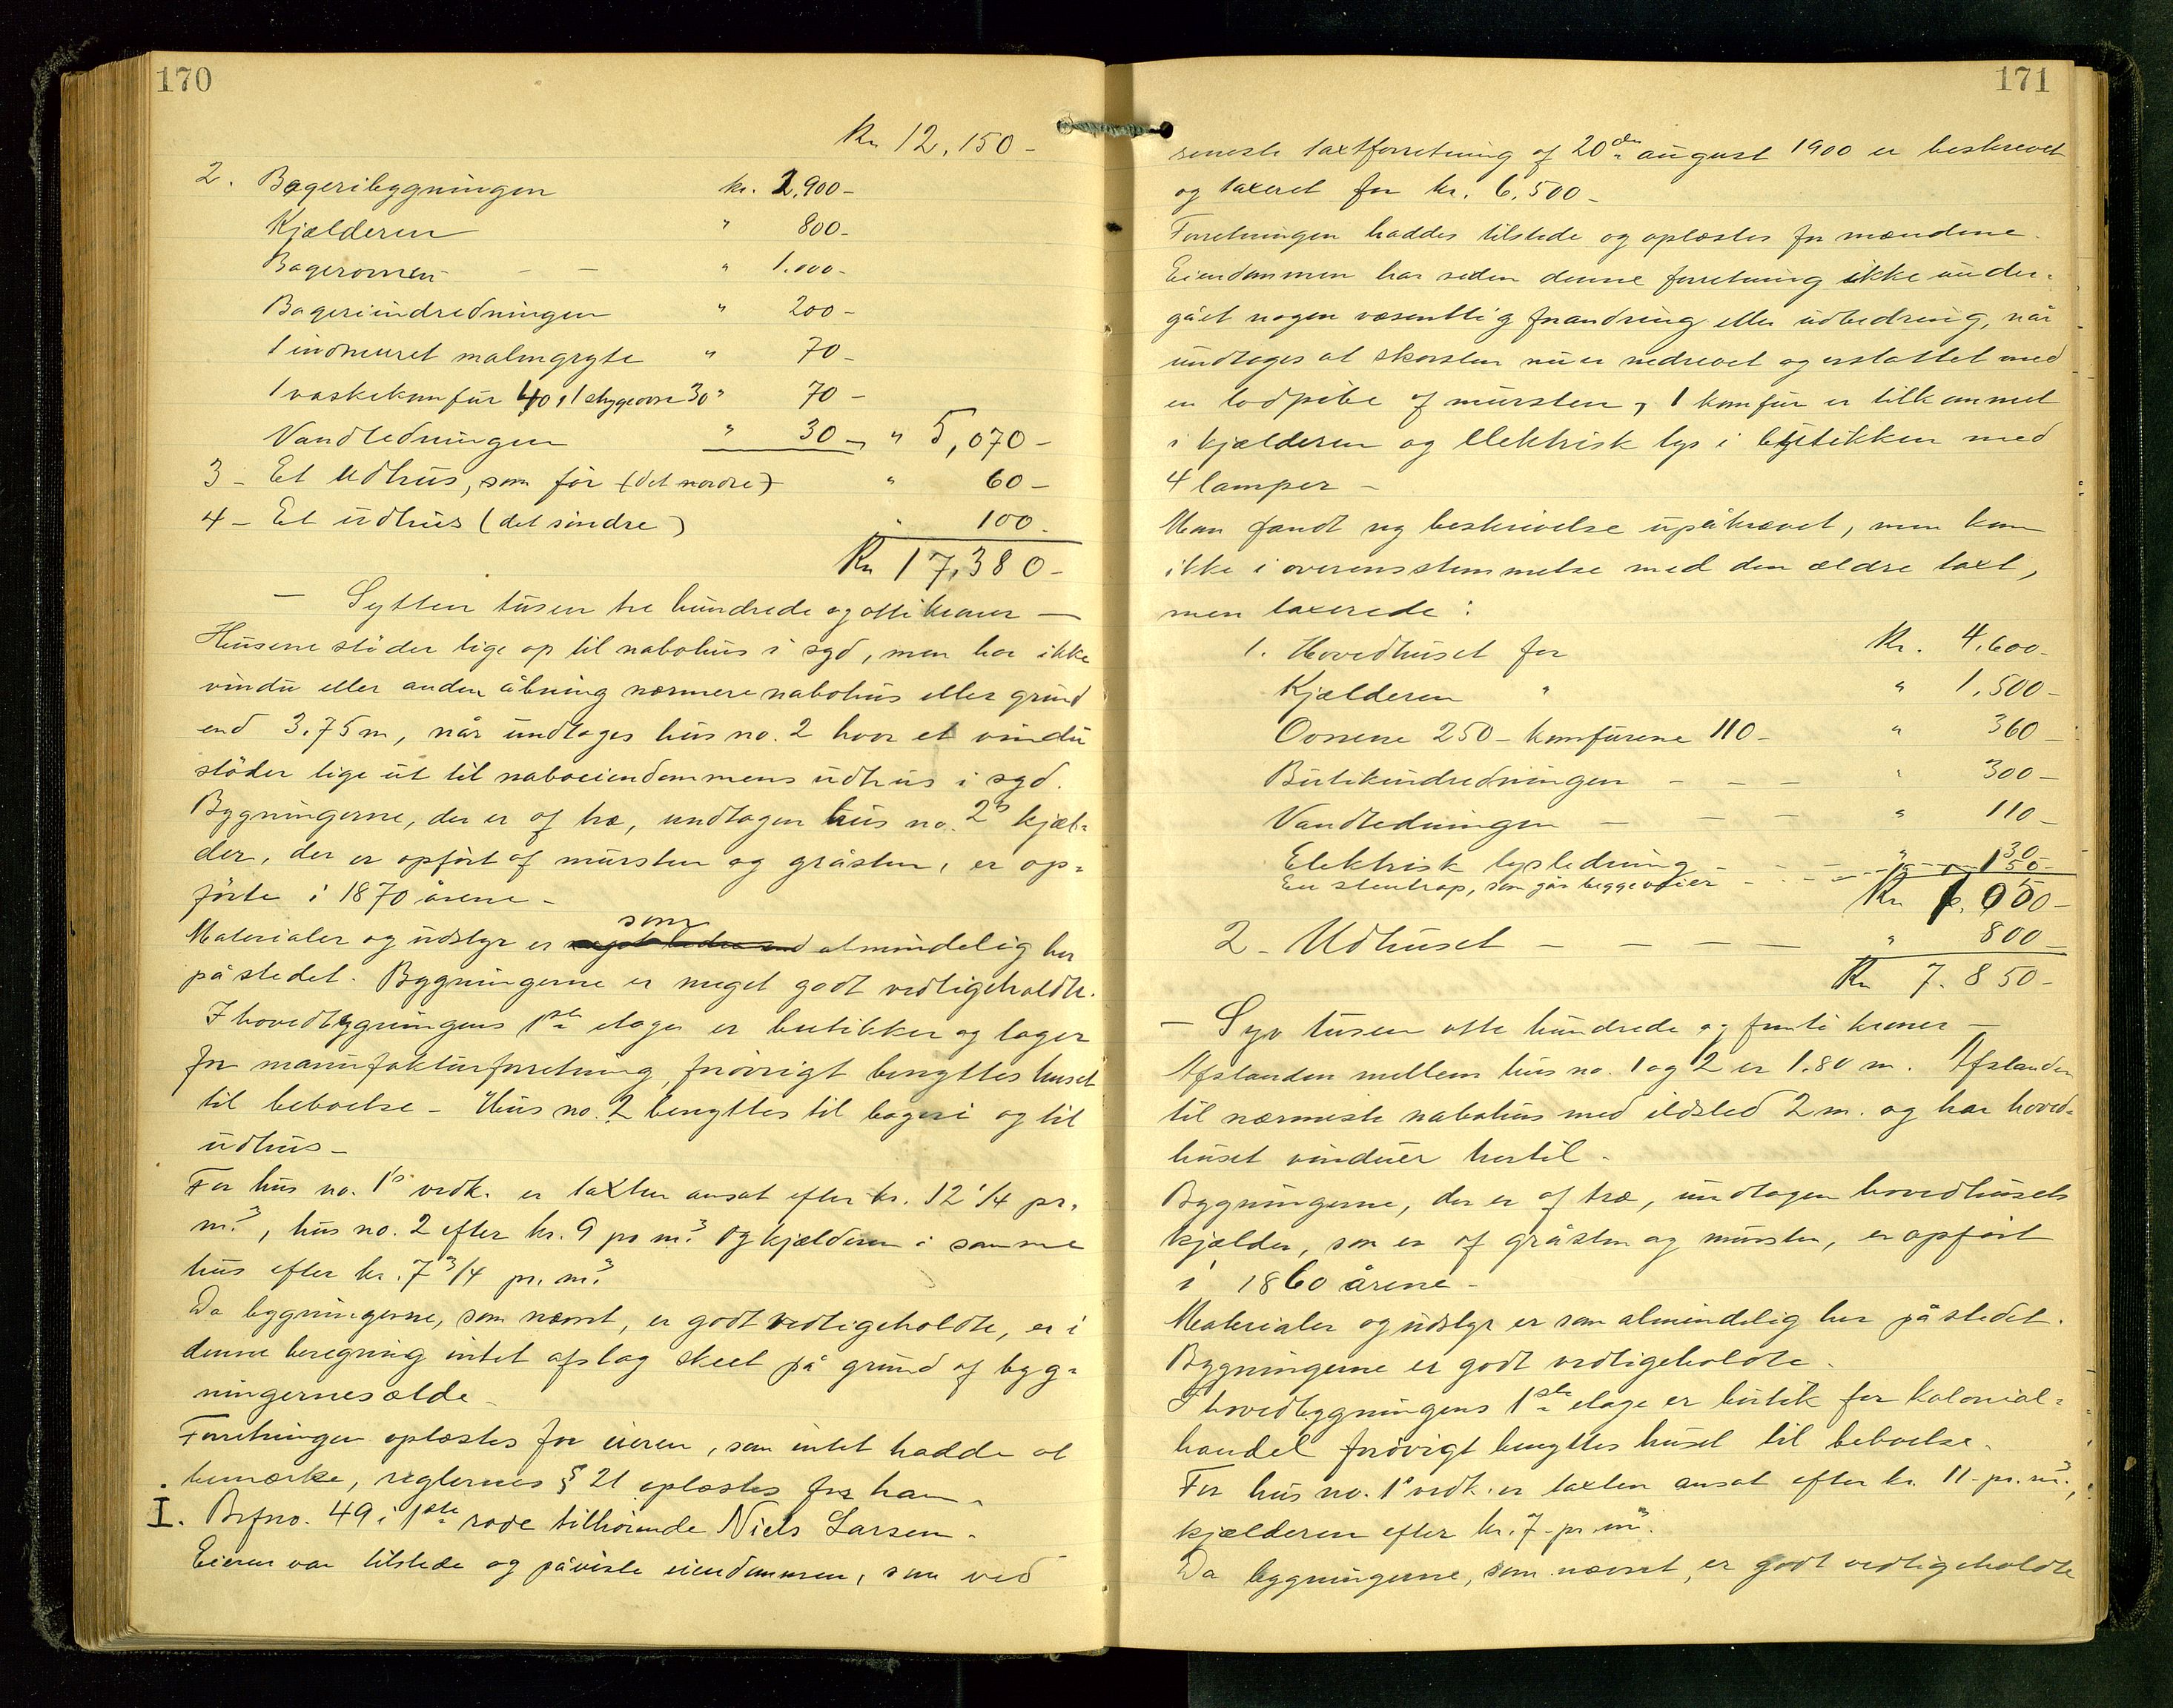 170
Kr 12,150-
2. Bageribygningen kr. 2,900-
Kjælderen " 800-
Bagerovnen - - " 1.000-
Bageriindredningen " 200-
1 indmuret malmgryte " 70-
1 vaskekomfur 40, 1 strygeovn 30 " 70-
Vandledningen " 30- " 5,070-
3- Et udhus, som før (det nordre) " 60-
4- Et udhus (det søndre) " 100-
Kr 17,380-
- Sytten tusen tre hundrede og otti kroner -
Husene støder lige op til nabohus i syd, men har ikke
vindu eller anden åbning nærmere nabohus eller grund
end 3.75 m, når undtages hus no. 2 hvor et vindu
støder lige ut til naboeiendommens udhus i syd.
Bygningerne, der er af træ, undtagen hus no. 2s kjæl-
der, der er opført af mursten og gråsten, er op-
førte i 1870 årene -
Materialer og udstyr er som almindelig her
på stedet. Bygningerne er meget godt vedligeholdte.
I hovedbygningens 1ste etage er butikker og lager
for manufakturforretning, forøvrigt benyttes huset
til beboelse - Hus no. 2 benyttes til bageri og til
udhus -
For hus no. 1s vedk. er taxten ansat efter kr. 12 1/4 pr.
m3, hus no. 2 efter kr. 9 pr m3 og kjælderen i samme
hus efter kr. 7 3/4 pr. m3
Da bygningerne, som nævnt, er godt vedligeholdte, er i
denne beregning intet afslag skeet på grund af byg-
ningernes ælde -
Forretningen oplæstes for eieren, som intet hadde at
bemærke, reglernes § 21 oplæstes for ham -
I. Brfno. 49 i 1ste rode tilhørende Niels Larsen -
Eieren var tilstede og påviste eiendommen, som ved
171
seneste taxtforretning af 20de august 1900 er beskrevet
og taxeret for kr. 6,500-
Forretningen haddes tilstede og oplæstes for mændene.
Eiendommen har siden denne forretning ikke under-
gået nogen væsentlig forandring eller udbedring, når
undtages at skorsten nu er nedrevet og erstattet med
en lodpibe af mursten, 1 komfur er tilkommet
i kjælderen og elektrisk lys i butikken med
4 lamper -
Man fandt ny beskrivelse upåkrævet, men kom
ikke i overensstemmelse med den ældre taxt,
men taxerede:
1. Hovedhuset for Kr. 4,600-
Kjælderen " " 1,500-
Ovnene 250- komfurene 110- " 360-
Butikindredningen - - - " 300-
Vandledningen - - - " 110-
Elektrisk lysledning - - - " 130
En stentrap, som går begge veier - - - " 50-
Kr 050-
2- Udhuset - - - - " 800-
Kr 7.850-
- Syv tusen otte hundrede og femti kroner -
Afstanden mellem hus no. 1 og 2 er 1.80 m. Afstanden
til nærmeste nabohus med ildsted 2 m. og har hoved-
huset vinduer hertil -
Bygningerne, der er af træ, undtagen hovedhusets
kjælder, som er af gråsten og mursten, er opført
i 1860 årene -
Materialer og udstyr er som almindelig her på stedet.
Bygningerne er godt vedligeholdte.
I hovedbygningens 1ste etage er butik for kolonial-
handel forøvrigt benyttes huset til beboelse.
For hus no. 1s vedk. er taxten ansat efter kr. 11- pr. m3,
kjælderen efter kr. 7- pr m3.
Da bygningerne, som nævnt, er godt vedligeholdte